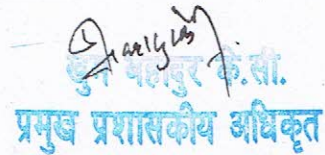 बहादुर के.सी.
प्रमुख प्रशासकीय अधिकृत